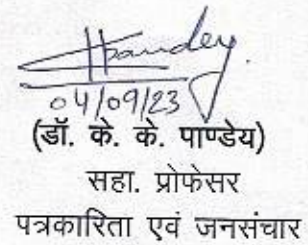 Pandey
04/09/23
(डॉ. के. के. पाण्डेय)
सहा. प्रोफेसर
पत्रकारिता एवं जनसंचार